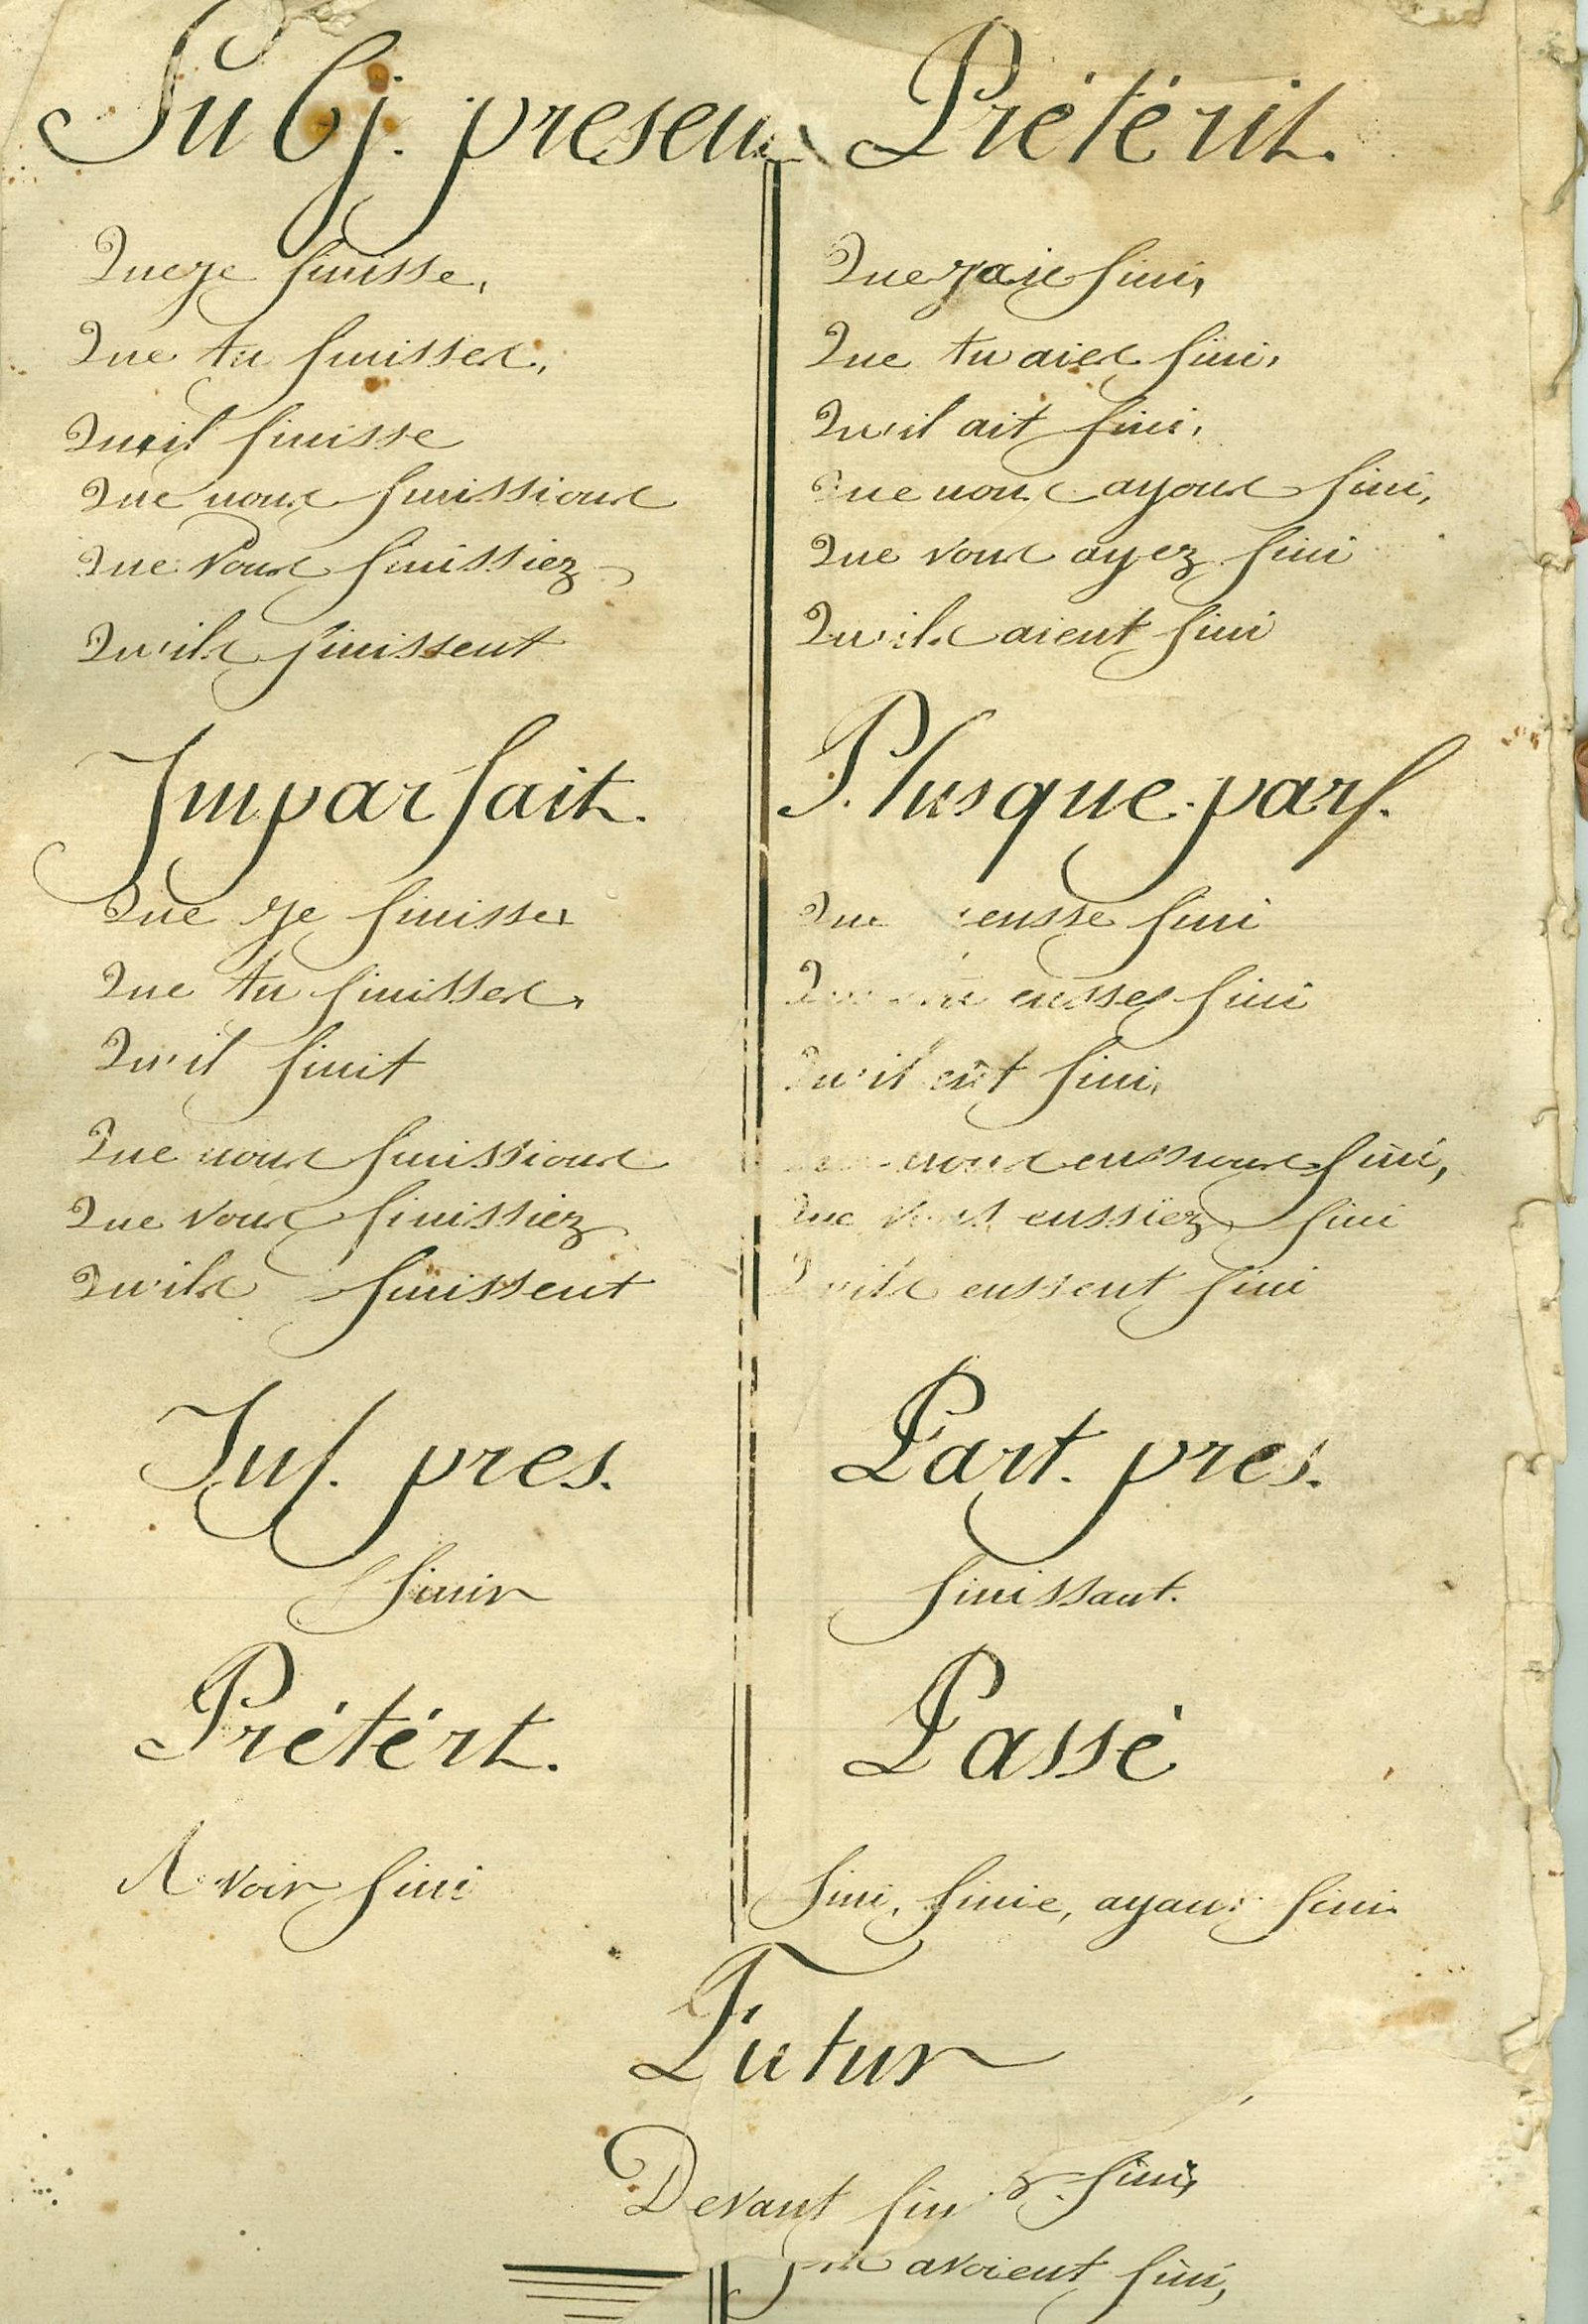 Subj. présen
Que je finisse,
Que tu finisses,
Qu'il finisse
Que nous finissions
Que vous finissiez
Qu'ils finissent
Imparfait.
Que je finisse,
Que tu finisses,
Qu'il finit
Que nous finissions
Que vous finissiez
Qu'ils finissent
Inf. pres.
finir
Prétért.
Avoir fini
Prétérit.
Que j'aie fini,
Que tu aies fini,
Qu'il ait fini,
Que nous ayons fini,
Que vous ayez fini
Qu'ils aient fini
Plusque-parf.
Que eusse fini
eusses fini
Qu'il eût fini,
nous eussions fini,
Que vous eussiez fini
Qu'ils eussent fini
Part. pres.
finissant.
Passé
fini, finie, ayant fini
Futur
Devant fini
fini,
avoient fini,